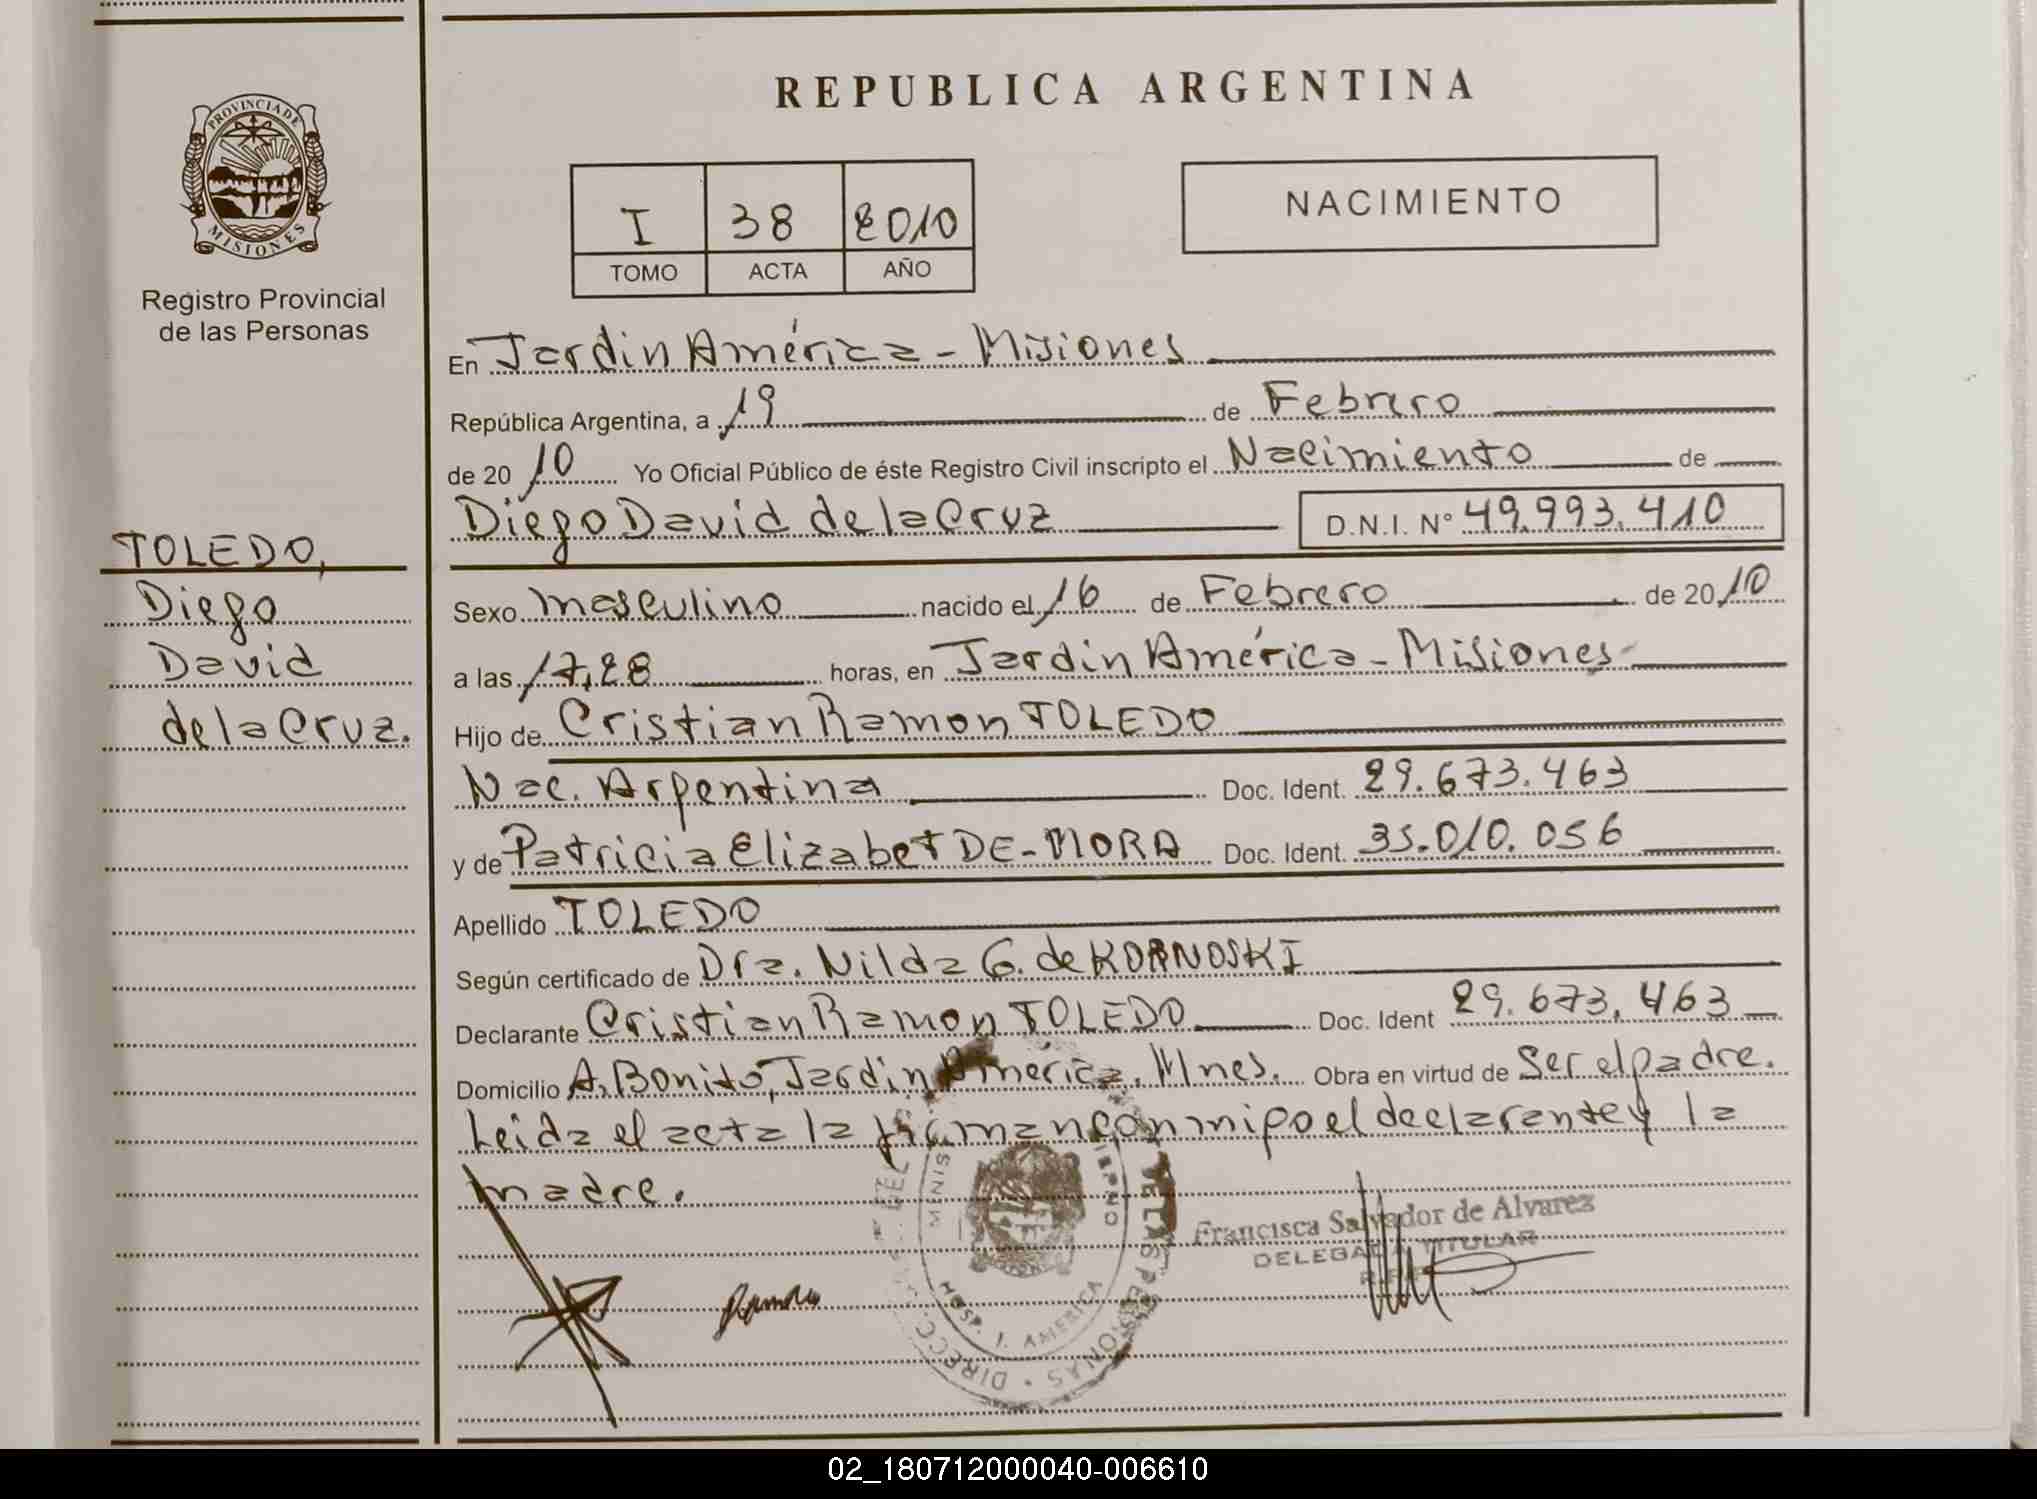 PROVINCIA DE
MISIONES
Registro Provincial
de las Personas
TOLEDO,
Diego
David
de la Cruz.
REPUBLICA ARGENTINA
I 38 2010
TOMO ACTA AÑO
NACIMIENTO
En Jardin América - Misiones
República Argentina, a 19 de Febrero
de 2010 Yo Oficial Público de éste Registro Civil inscripto el Nacimiento de
Diego David de la Cruz D.N.I. N° 49.993.410
Sexo masculino nacido el 16 de Febrero de 2010
a las 17,28 horas, en Jardin América - Misiones
Hijo de Cristian Ramon TOLEDO
Nac. Argentina Doc. Ident. 29.673.463
y de Patricia Elizabet DE-MORA Doc. Ident. 35.010.056
Apellido TOLEDO
Según certificado de Dra. Nilda G. de KORNOSKI
Declarante Cristian Ramon TOLEDO Doc. Ident 29.673.463
Domicilio A. Bonito, Jardin América, Mnes. Obra en virtud de Ser el padre.
Leida el acta la firman conmigo el declarante y la
madre.
Francisca Salvador de Alvarez
DELEGADA TITULAR
HOSP. J. AMERICA
02_180712000040-006610